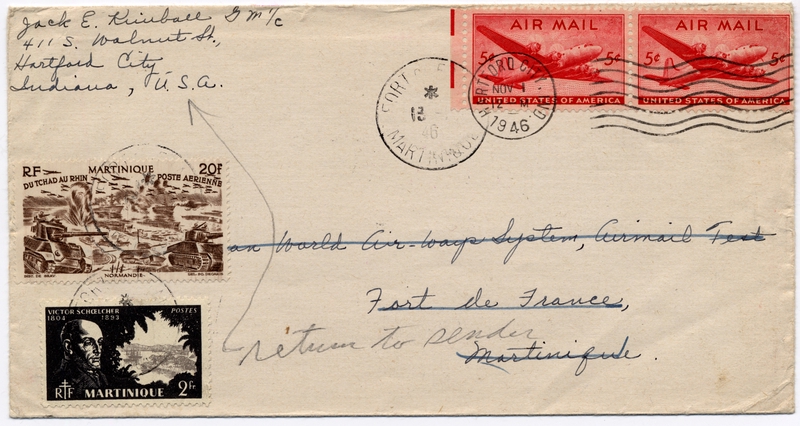 Jack E. Kimball GM 1/c
411 S. Walnut St.,
Hartford City
Indiana, U.S.A.
AIR MAIL
5¢ 5¢
UNITED STATES OF AMERICA
AIR MAIL
5¢ 5¢
UNITED STATES OF AMERICA
FORT
13
46
MARTINIQUE
HARTFORD CITY
NOV 1
12 M
1946
IND
RF MARTINIQUE 20F
DU TCHAD AU RHIN POSTE AERIENNE
NORMANDIE
an World Air-ways System, Airmail Test
Fort de France,
Martinique.
return to sender
VICTOR SCHŒLCHER POSTES
1804 1893
RF MARTINIQUE 2Fr